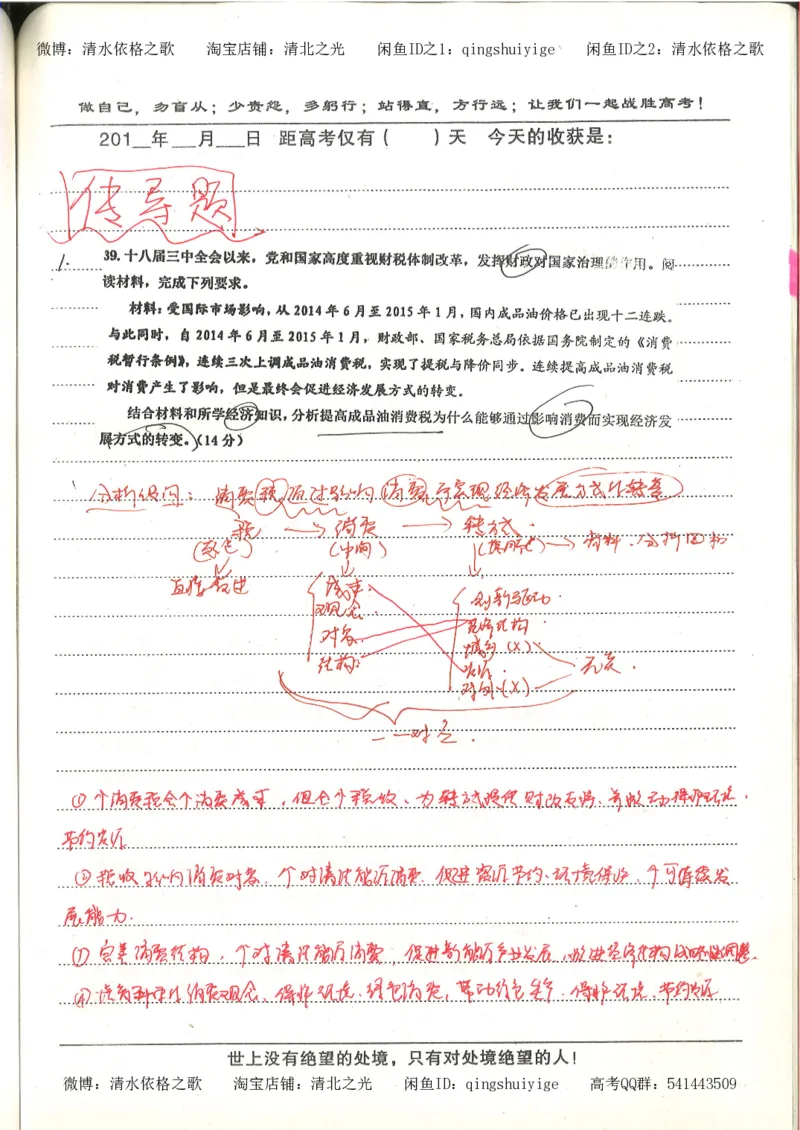 微博：清水依格之歌 淘宝店铺：清北之光 闲鱼ID之1：qingshuiyige 闲鱼ID之2：清水依格之歌
做自己，勿盲从；少责怨，多躬行；站得直，方行远；让我们一起战胜高考！
201__年___月___日 距高考仅有（ ）天 今天的收获是：
传导题
1. 39.十八届三中全会以来，党和国家高度重视财税体制改革，发挥财政对国家治理的作用。阅
读材料，完成下列要求。
材料：受国际市场影响，从2014年6月至2015年1月，国内成品油价格已出现十二连跌。
与此同时，自2014年6月至2015年1月，财政部、国家税务总局依据国务院制定的《消费
税暂行条例》，连续三次上调成品油消费税，实现了提税与降价同步。连续提高成品油消费税
对消费产生了影响，但是最终会促进经济发展方式的转变。
结合材料和所学经济知识，分析提高成品油消费税为什么能够通过影响消费而实现经济发
展方式的转变。（14分）
分析设问：消费税通过影响消费而实现经济发展方式的转变
税 → 消费 → 转方式
（中间）
材料
成本
观念
对象
结构
创新驱动
经济结构
城乡（X）
无关
一一对应
①个消费税会个消费成本，但会个税收、为转方式提供财政支持
节约资源
②税收影响消费对象，个对清洁能源消费，促进资源节约、环境保护，个可持续发
展能力.
①完善消费结构，个对清洁能源消费，促进新能源产业发展
④ 消费观念、保护环境、绿色消费，带动绿色生产，保护环境、节约资源
世上没有绝望的处境，只有对处境绝望的人！
微博：清水依格之歌 淘宝店铺：清北之光 闲鱼ID：qingshuiyige 高考QQ群：541443509